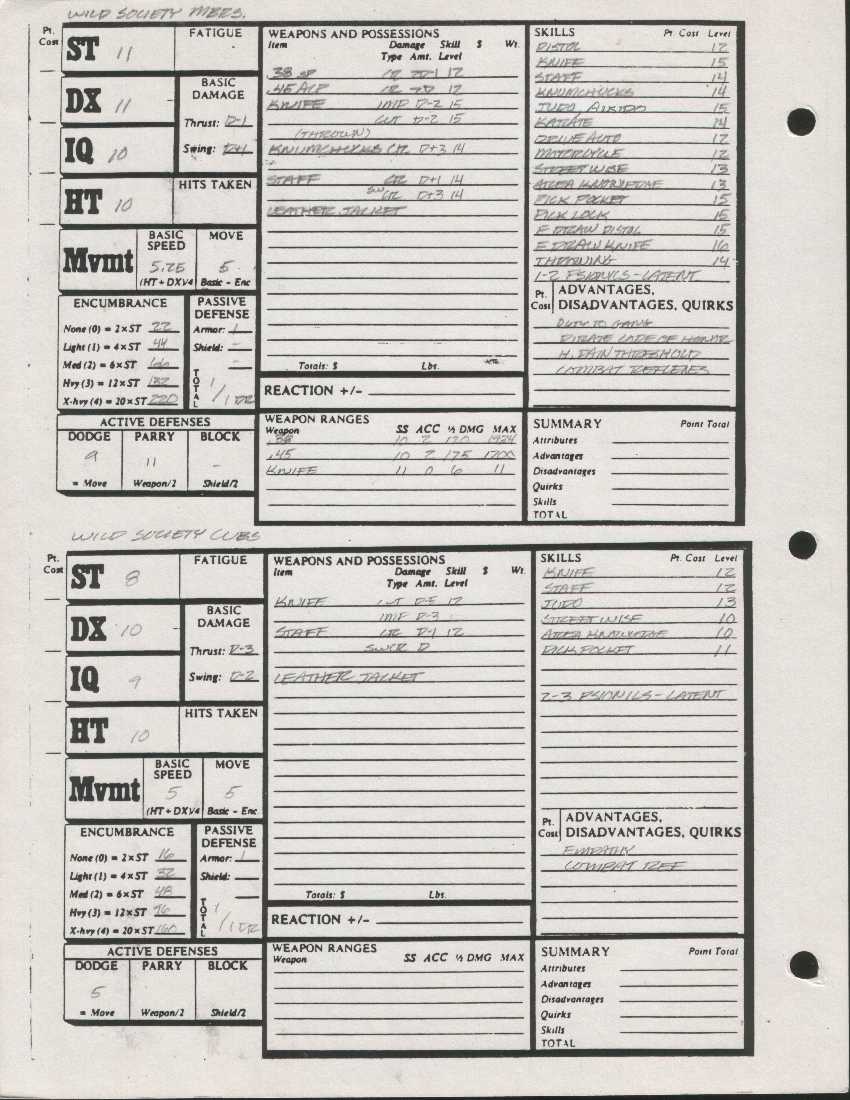 WILD SOCIETY MBRS.
Pt. Cost
ST 11
FATIGUE
DX 11
BASIC DAMAGE
Thrust: D-1
Swing: D+1
IQ 10
HT 10
HITS TAKEN
Mvmt
BASIC SPEED
5.25
(HT + DX)/4
MOVE
5
Basic - Enc
ENCUMBRANCE
None (0) = 2 x ST 22
Light (1) = 4 x ST 44
Med (2) = 6 x ST 66
Hvy (3) = 12 x ST 132
X-hvy (4) = 20 x ST 220
PASSIVE DEFENSE
Armor: 1
Shield: -
TOTAL 1/1 DR
ACTIVE DEFENSES
DODGE PARRY BLOCK
9 11 -
= Move Weapon/2 Shield/2
WEAPONS AND POSSESSIONS
Item Damage Skill $ Wt.
Type Amt. Level
.38 SP CR 2D-1 12
.45 ACP CR 2D 12
KNIFE IMP D-2 15
CUT D-2 15
(THROWN)
KNUMCHUCKS CR. D+3 14
STAFF CR D+1 14
SW CR D+3 14
LEATHER JACKET
Totals: $ Lbs.
REACTION +/-
WEAPON RANGES
Weapon SS ACC ½ DMG MAX
.38 10 2 120 1924
.45 10 2 175 1700
KNIFE 11 0 6 11
SKILLS Pt. Cost Level
PISTOL 12
KNIFE 15
STAFF 14
KNUMCHUCKS 14
JUDO, AIKIDO 15
KARATE 14
DRIVE AUTO 12
MOTORCYCLE 12
STREETWISE 13
AREA KNOWLEDGE 13
PICK POCKET 15
PICK LOCK 15
F DRAW PISTOL 15
F DRAW KNIFE 16
THROWING 14
1-2 PSIONICS - LATENT
Pt. Cost
ADVANTAGES, DISADVANTAGES, QUIRKS
DUTY TO GANG
PIRATE CODE OF HONOR
H. PAIN THRESHOLD
COMBAT REFLEXES
SUMMARY Point Total
Attributes
Advantages
Disadvantages
Quirks
Skills
TOTAL
WILD SOCIETY CUBS
Pt. Cost
ST 8
FATIGUE
DX 10
BASIC DAMAGE
Thrust: D-3
Swing: D-2
IQ 9
HT 10
HITS TAKEN
Mvmt
BASIC SPEED
5
(HT + DX)/4
MOVE
5
Basic - Enc
ENCUMBRANCE
None (0) = 2 x ST 16
Light (1) = 4 x ST 32
Med (2) = 6 x ST 48
Hvy (3) = 12 x ST 96
X-hvy (4) = 20 x ST 160
PASSIVE DEFENSE
Armor: 1
Shield:
TOTAL 1/1 DR
ACTIVE DEFENSES
DODGE PARRY BLOCK
5
= Move Weapon/2 Shield/2
WEAPONS AND POSSESSIONS
Item Damage Skill $ Wt.
Type Amt. Level
KNIFE CUT D-5 12
IMP D-3
STAFF CR D-1 12
SWCR D
LEATHER JACKET
Totals: $ Lbs.
REACTION +/-
WEAPON RANGES
Weapon SS ACC ½ DMG MAX
SKILLS Pt. Cost Level
KNIFE 12
STAFF 12
JUDO 13
STREETWISE 10
AREA KNOWLEDGE 10
PICK POCKET 11
2-3 PSIONICS - LATENT
Pt. Cost
ADVANTAGES, DISADVANTAGES, QUIRKS
EMPATHY
COMBAT REF
SUMMARY Point Total
Attributes
Advantages
Disadvantages
Quirks
Skills
TOTAL